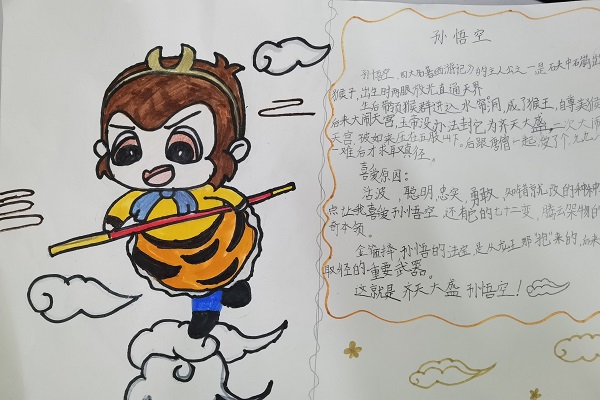 孙悟空
孙悟空,四大名著西游记》的主人公之一是
猴子,出生时两眼放光直通天界
生后带领猴群进入水帘洞,成了猴王,自尊美猴
后来大闹天宫,玉帝没办法封它为齐天大盛,二次大闹
天宫被如来压在五 山下。后跟 僧一起 了个九九八
一难后才求取真经。
喜爱原因:
活波,聪明,忠实,勇敢,知错就改的种种
点让我喜爱孙悟空还有它的七十二变,腾云架物的
奇本领。
金箍棒,孙悟的法宝是从龙王那“抱”来的,后来
取怪的重要武器。
这就是齐天大盛孙悟空!